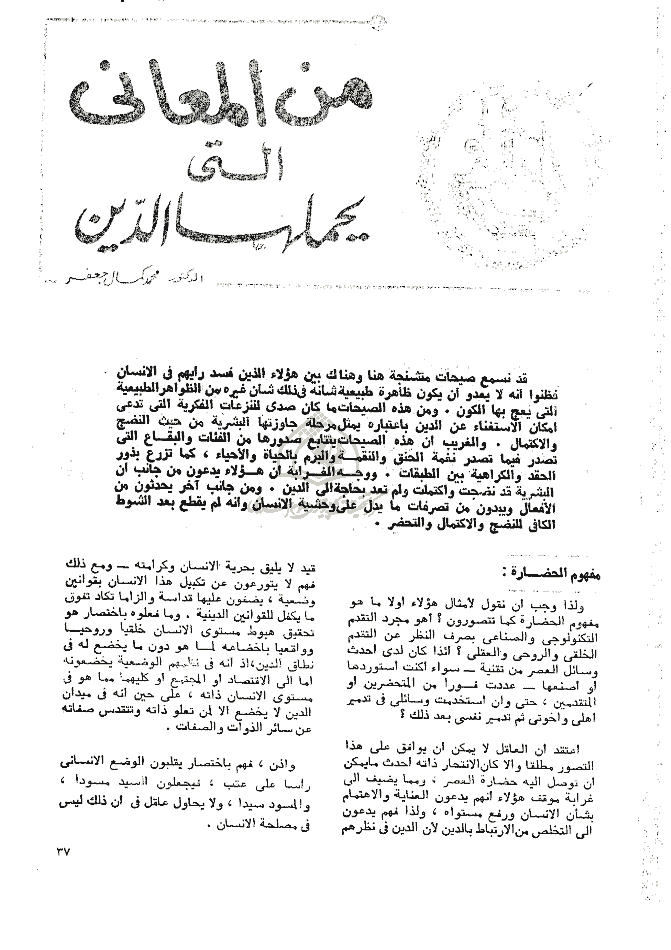 من المعانى
التى
يحملها الدّين
الدكتور محمد كمال جعفر
قد نسمع صيحات متشنجة هنا وهناك بين هؤلاء الذين فسد رأيهم فى الانسان
فظنوا انه لا يعدو أن يكون ظاهرة طبيعية شأنه فى ذلك شأن غيره من الظواهر الطبيعية
التى يعج بها الكون . ومن هذه الصيحات ما كان صدى للنزعات الفكرية التى تدعى
امكان الاستغناء عن الدين باعتباره يمثل مرحلة جاوزتها البشرية من حيث النضج
والاكتمال . والغريب ان هذه الصيحات يتتابع صدورها من الفئات والبقاع التى
تصدر فيما تصدر نغمة الحنق والنقمة والبرم بالحياة والأحياء ، كما تزرع بذور
الحقد والكراهية بين الطبقات . ووجه الغرابة ان هؤلاء يدعون من جانب ان
البشرية قد نضجت واكتملت ولم تعد بحاجة الى الدين . ومن جانب آخر يحدثون من
الأفعال ويبدون من تصرفات ما يدل على وحشية الانسان وانه لم يقطع بعد الشوط
الكافى للنضج والاكتمال والتحضر .
مفهوم الحضارة :
ولذا وجب ان نقول لأمثال هؤلاء اولا ما هو
مفهوم الحضارة كما تتصورون ؟ أهو مجرد التقدم
التكنولوجى والصناعى بصرف النظر عن التقدم
الخلقى والروحى والعقلى ؟ ائذا كان لدى احدث
وسائل العصر من تقنية – سواء اكنت استوردها
او اصنعها – عددت فورا من المتحضرين او
المتقدمين ، حتى وان استخدمت وسائلى فى تدمير
اهلى واخوتى ثم تدمير نفسى بعد ذلك ؟
اعتقد ان العاقل لا يمكن ان يوافق على هذا
التصور مطلقا والا كان الانتحار ذاته احدث مايمكن
ان توصل اليه حضارة العصر ، ومما يضيف الى
غرابة موقف هؤلاء انهم يدعون العناية والاهتمام
بشأن الانسان ورفع مستواه ، ولذا فهم يدعون
الى التخلص من الارتباط بالدين لأن الدين فى نظرهم
قيد لا يليق بحرية الانسان وكرامته – ومع ذلك
فهم لا يتورعون عن تكبيل هذا الانسان بقوانين
وضعية ، يضفون عليها قداسة والزاما تكاد تفوق
ما يكفل للقوانين الدينية . وما فعلوه باختصار هو
تحقيق هبوط مستوى الانسان خلقيا وروحيا
وواقعيا باخضاعه لما هو دون ما يخضع له فى
نطاق الدين، اذ انه فى نظمهم الوضعية يخضعونه
اما الى الاقتصاد او المجتمع او كليهما مما هو فى
مستوى الانسان ذاته ، على حين انه فى ميدان
الدين لا يخضع الا لمن تعلو ذاته وتتقدس صفاته
عن سائر الذوات والصفات .
واذن ، فهم باختصار يقلبون الوضع الانسانى
رأسا على عقب ، فيجعلون السيد مسودا ،
والمسود سيدا ، ولا يحاول عاقل فى ان ذلك ليس
فى مصلحة الانسان .
٣٧